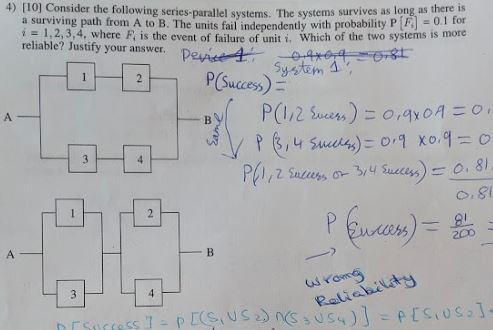 4) [10] Consider the following series-parallel systems. The systems survives as long as there is
a surviving path from A to B. The units fail independently with probability P[Fᵢ] = 0.1 for
i = 1,2,3,4, where Fᵢ is the event of failure of unit i. Which of the two systems is more
reliable? Justify your answer.
Device 1: 0.9x0.9 = 0.81
System 1:
P(Success) =
1 2
A B
3 4
same
P(1,2 Success) = 0.9x0.9 = 0.
P(3,4 Success) = 0.9 x0.9 = 0
P(1,2 Success or 3,4 Success) = 0.81
0.81
P(Success) = 81/200 =
1 2
A B
3 4
wrong
Reliability
P[Success] = P[(S₁US₂)∩(S₃US₄)] = P[S₁US₂]